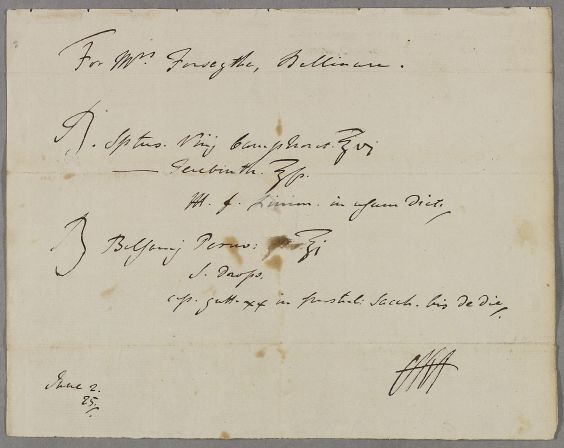 For Mrs Forsythe, Bellinare.
℞. Sptus. Vinj Camphorat. ℥vj
—— Terebinth. ℥ſs.
M. f. Linim. in usum Dict.
℞ Balsamj Peruv: ʒj
S. Drops.
cap. gutt. xx in frustul. Sacch. bis de die.
June 2.
25.